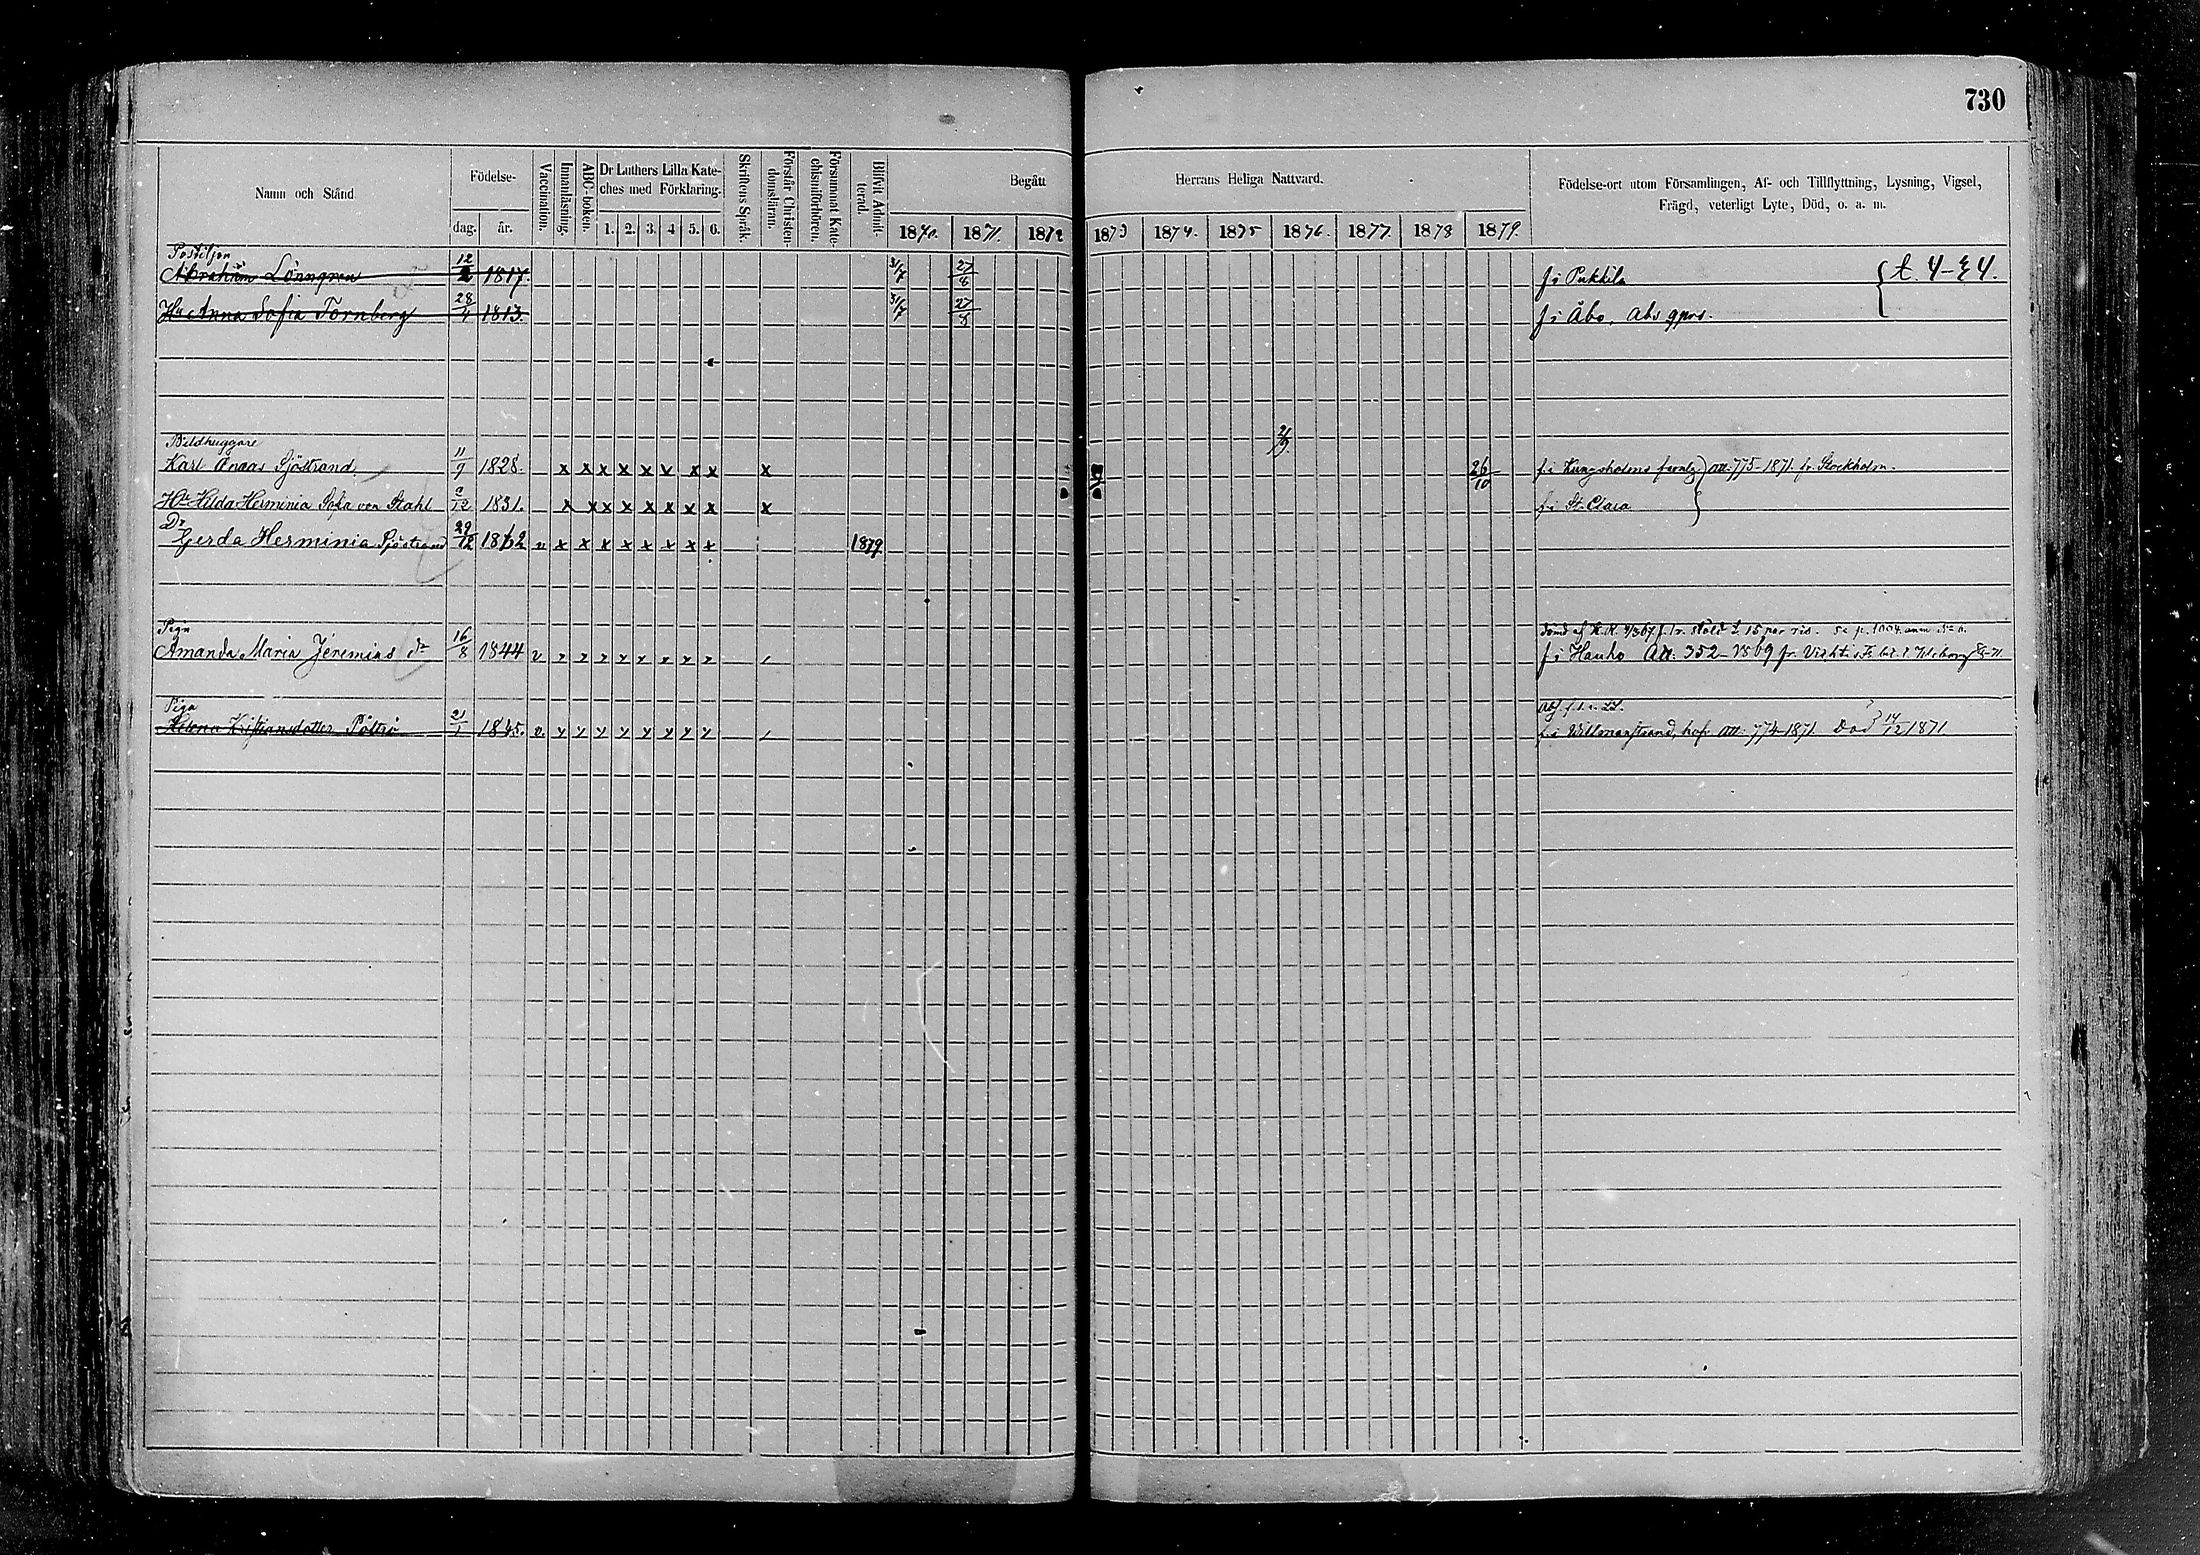 730
Namn och Stånd.
Födelse-
dag. år.
Vaccination.
Innanläsning.
ABC-boken.
Dr Luthers Lilla Kate-
ches med Förklaring.
1. 2. 3. 4 5. 6.
Skriftens Språk.
Förstår Christen-
domsläran.
Försummat Kate-
chismiförhören.
Blifvit Admit-
terad.
Begått Herrans Heliga Nattvard.
1870. 1871. 1872 1873 1874. 1875 1876. 1877. 1878 1879.
Födelse-ort utom Församlingen, Af- och Tillflyttning, Lysning, Vigsel,
Frägd, veterligt Lyte, Död, o. a. m.
Postiljon
Abraham Lönngren 12 1817. 31/7 27/8 f i Pukkila
Hu Anna Sofia Tornberg 28/4 1813. 31/7 27/8 f i Åbo.
Bildhuggare
Karl Eneas Sjöstrand 11/9 1828. x x x x x x x x x 26/10 f. i Kungsholms att. 775-1871. fr. Stockholm.
Hu Hilda Herminia Sofia von Stahl 2/12 1831. x x x x x x x x x f. i St. Clara
Dr
Gerda Herminia Sjöstrand 29/12 1862 v x x x x x x x x 1879
Pign
Amanda Maria Jeremias dr 16/8 1844 v
f i Hauho Att. 352-1869 fr.
Piga
Helena Kristiansdotter Pöllri 21/1 1845. v.
f. i Willmanstrand, att. 774-1871. Död 14/12 1871